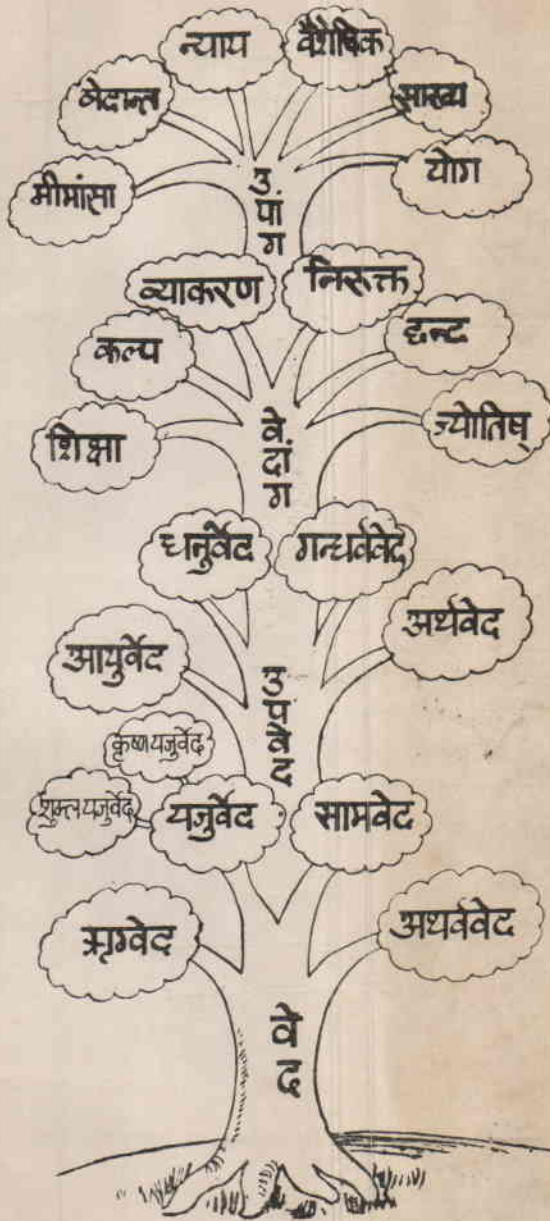 न्याय
वैशेषिक
वेदान्त
सांख्य
मीमांसा
योग
उपांग
व्याकरण
निरूक्त
कल्प
छन्द
शिक्षा
ज्योतिष्
वेदांग
धनुर्वेद
गन्धर्ववेद
आयुर्वेद
अर्थवेद
उपवेद
कृष्ण यजुर्वेद
शुक्ल यजुर्वेद
यजुर्वेद
सामवेद
ऋग्वेद
अथर्ववेद
वेद